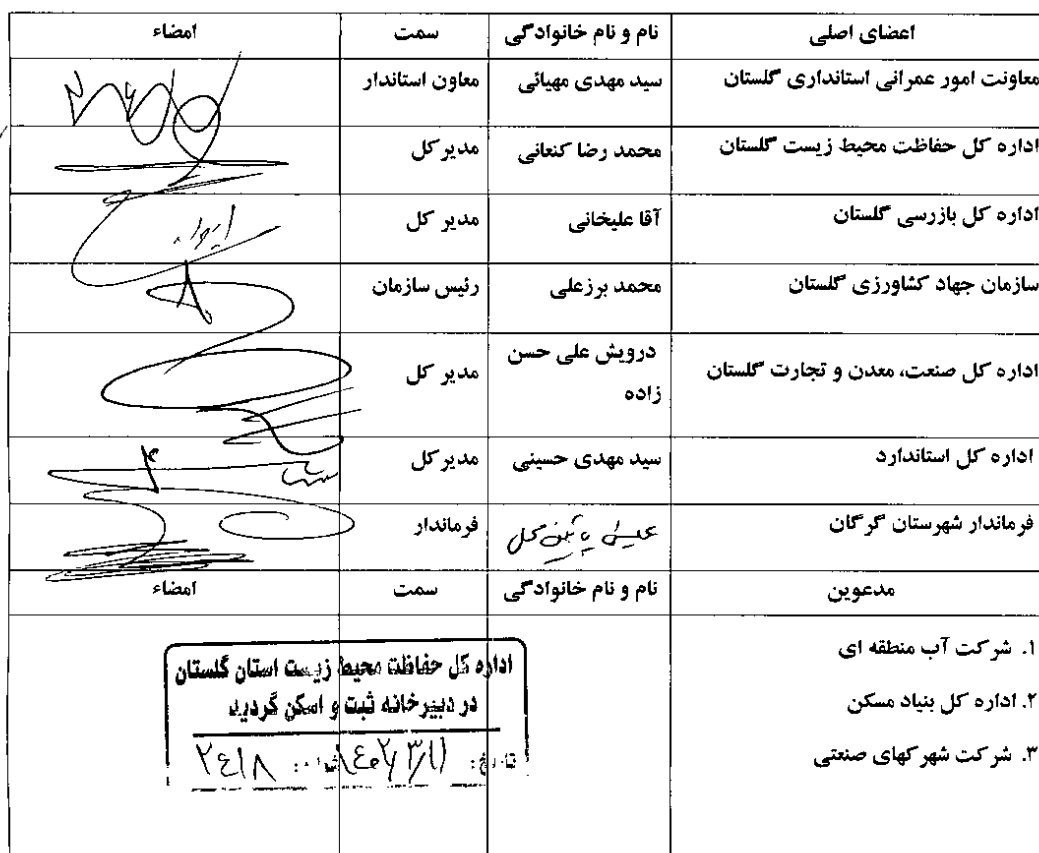 اعضای اصلی نام و نام خانوادگی سمت امضاء
معاونت امور عمرانی استانداری گلستان سید مهدی مهیائی معاون استاندار
اداره کل حفاظت محیط زیست گلستان محمد رضا کنعانی مدیر کل
اداره کل بازرسی گلستان آقا علیخانی مدیر کل
سازمان جهاد کشاورزی گلستان محمد برزعلی رئیس سازمان
اداره کل صنعت، معدن و تجارت گلستان درویش علی حسن مدیر کل
زاده
اداره کل استاندارد سید مهدی حسینی مدیر کل
فرماندار شهرستان گرگان فرماندار
مدعوین نام و نام خانوادگی سمت امضاء
۱. شرکت آب منطقه ای
۲. اداره کل بنیاد مسکن
۳. شرکت شهرکهای صنعتی
اداره کل حفاظت محیط زیست استان گلستان
در دبیرخانه ثبت و اسکن گردید
تاریخ: ۱۴۰۲/۳/۱۱